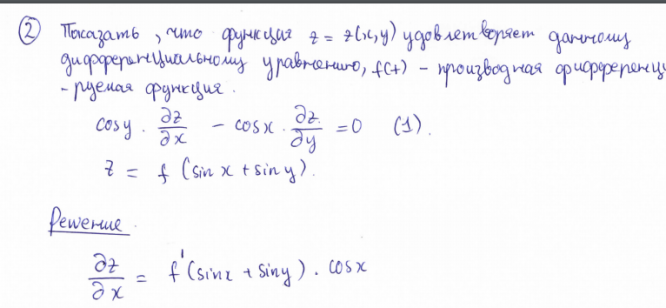 ② Показать, что функция z = z(x,y) удовлетворяет данному
дифференциальному уравнению, f(t) – производная дифференци
- руемая функция.
cosy · ∂z/∂x – cosx · ∂z/∂y = 0 (1).
z = f (sin x + sin y).
Решение.
∂z/∂x = f'(sinx + siny) · cosx